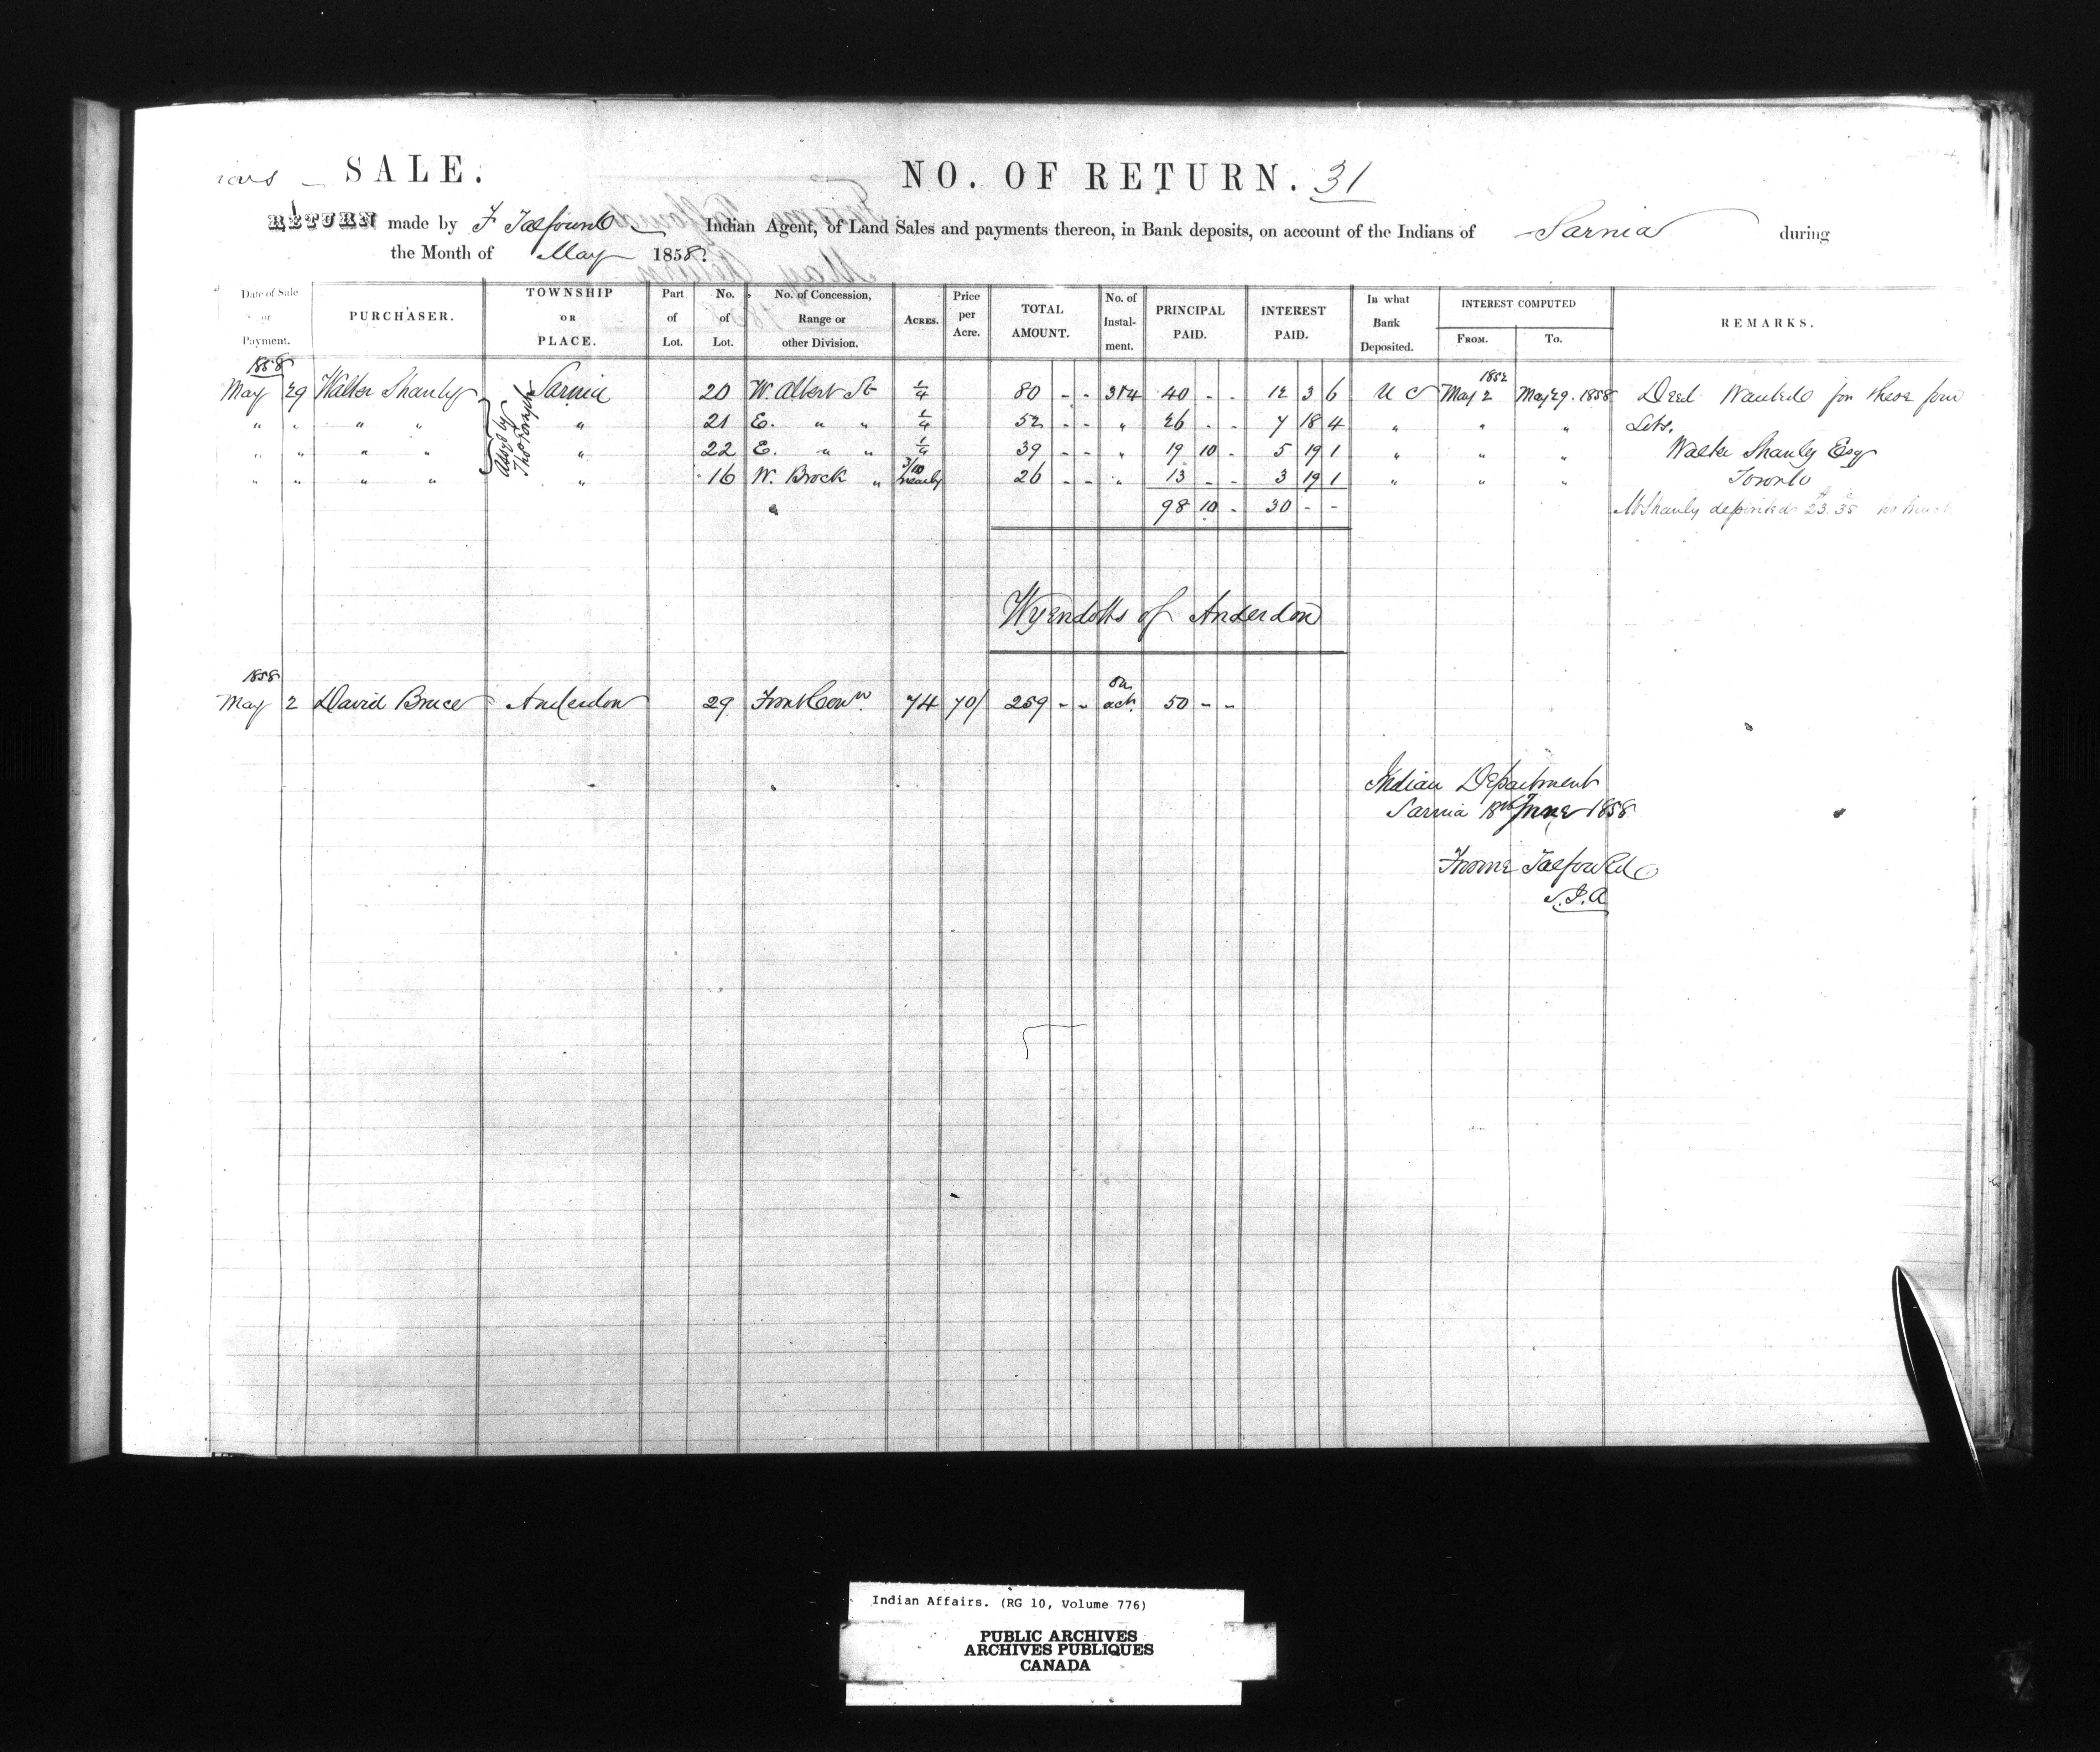 SALE.
NO. OF RETURN. 31
RETURN made by F Talfourd Indian Agent, of Land Sales and payments thereon, in Bank deposits, on account of the Indians of Sarnia during
the Month of May 1858.
Date of Sale or Payment. PURCHASER. TOWNSHIP OR PLACE. Part of Lot. No. of Lot. No. of Concession, Range or other Division. ACRES. Price per Acre. TOTAL AMOUNT. No. of Instal-ment. PRINCIPAL PAID. INTEREST PAID. In what Bank Deposited. INTEREST COMPUTED FROM. TO. REMARKS.
1858
May 29 Walter Shanly Assgd by Thos Forsyth Sarnia 20 W. Albert St 1/4 80 - - 3&4 40 - - 12 3 6 U C May 2 1852 May 29. 1858 Deed Wanted for these four
" " " " " 21 E. " " 1/4 52 - - " 26 - - 7 18 4 " " " Lots.
" " " " " 22 E. " " 1/4 39 - - " 19 10 - 5 19 1 " " " Walter Shanly Esq
" " " " " 16 W. Brock " 3/10 nearly 26 - - " 13 - - 3 19 1 " " " Toronto
98 10 - 30 - - Mr Shanly deposited 23.35
Wyendotts of Anderdon
1858
May 2 David Bruce Anderdon 29 Front Conn. 74 70/ 259 - - on act. 50 - -
Indian Department
Sarnia 18th June 1858
Froome Talfourd
S.I.A
Indian Affairs. (RG 10, Volume 776)
PUBLIC ARCHIVES
ARCHIVES PUBLIQUES
CANADA